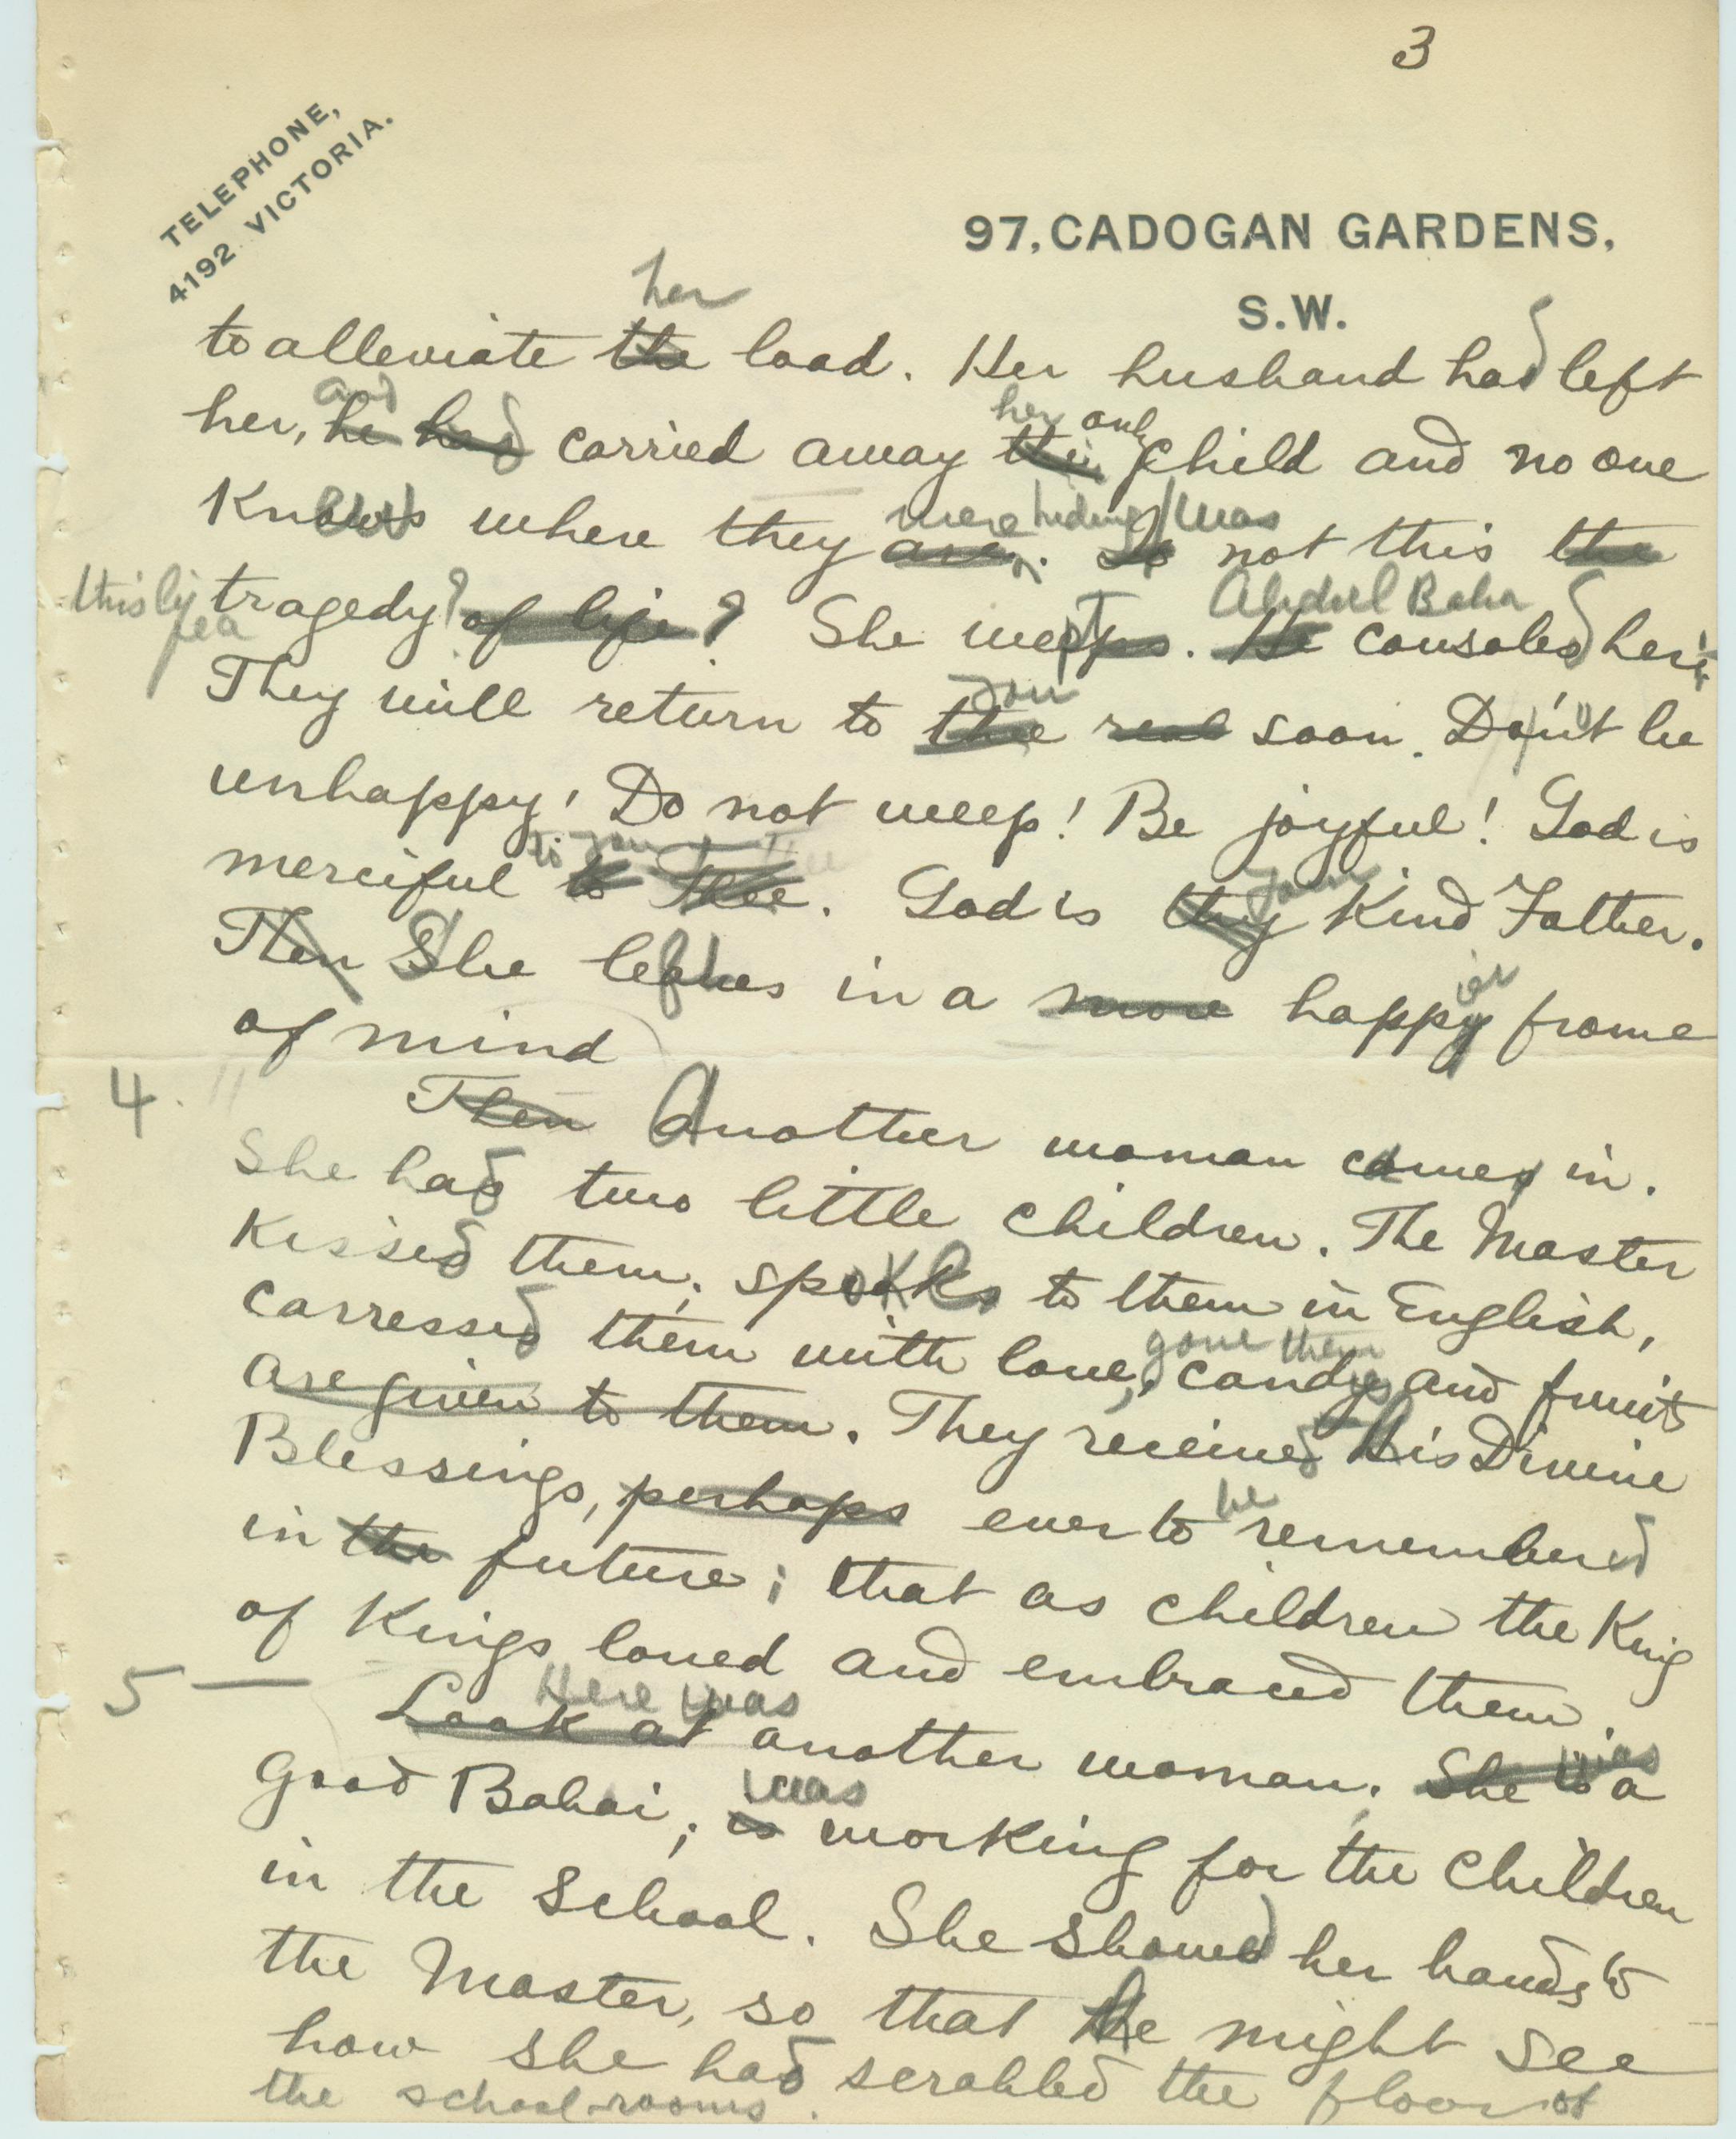 3
TELEPHONE,
4192 VICTORIA.
97, CADOGAN GARDENS,
S.W.
her
to alleviate the load. Her husband had left
and her only
her, he had carried away the child and no one
were hiding / was
Knows where they are. Is not this the
Abdul Baha
tragedy? of life? She wept. He consoled her:
you
They will return to thee real soon. Don't be
unhappy! Do not weep! Be joyful! God is
to you
merciful to Thee. God is thy your Kind Father.
Then She left in a more happy ier frame
of mind
4. Then Another woman came in.
She had two little children. The Master
Kissed them, spoke to them in English,
gave them
carressed them with love, candy and fruits
are given to them. They received His Divine
be
Blessings, perhaps ever to remembered
in the future; that as children the King
of Kings loved and embraced them.
Here was
5 — Look at another woman. She is was a
was
good Bahai; is working for the children
in the School. She showed her hands to
the Master, so that He might see
how she had scrabbed the floor of
the school-rooms.